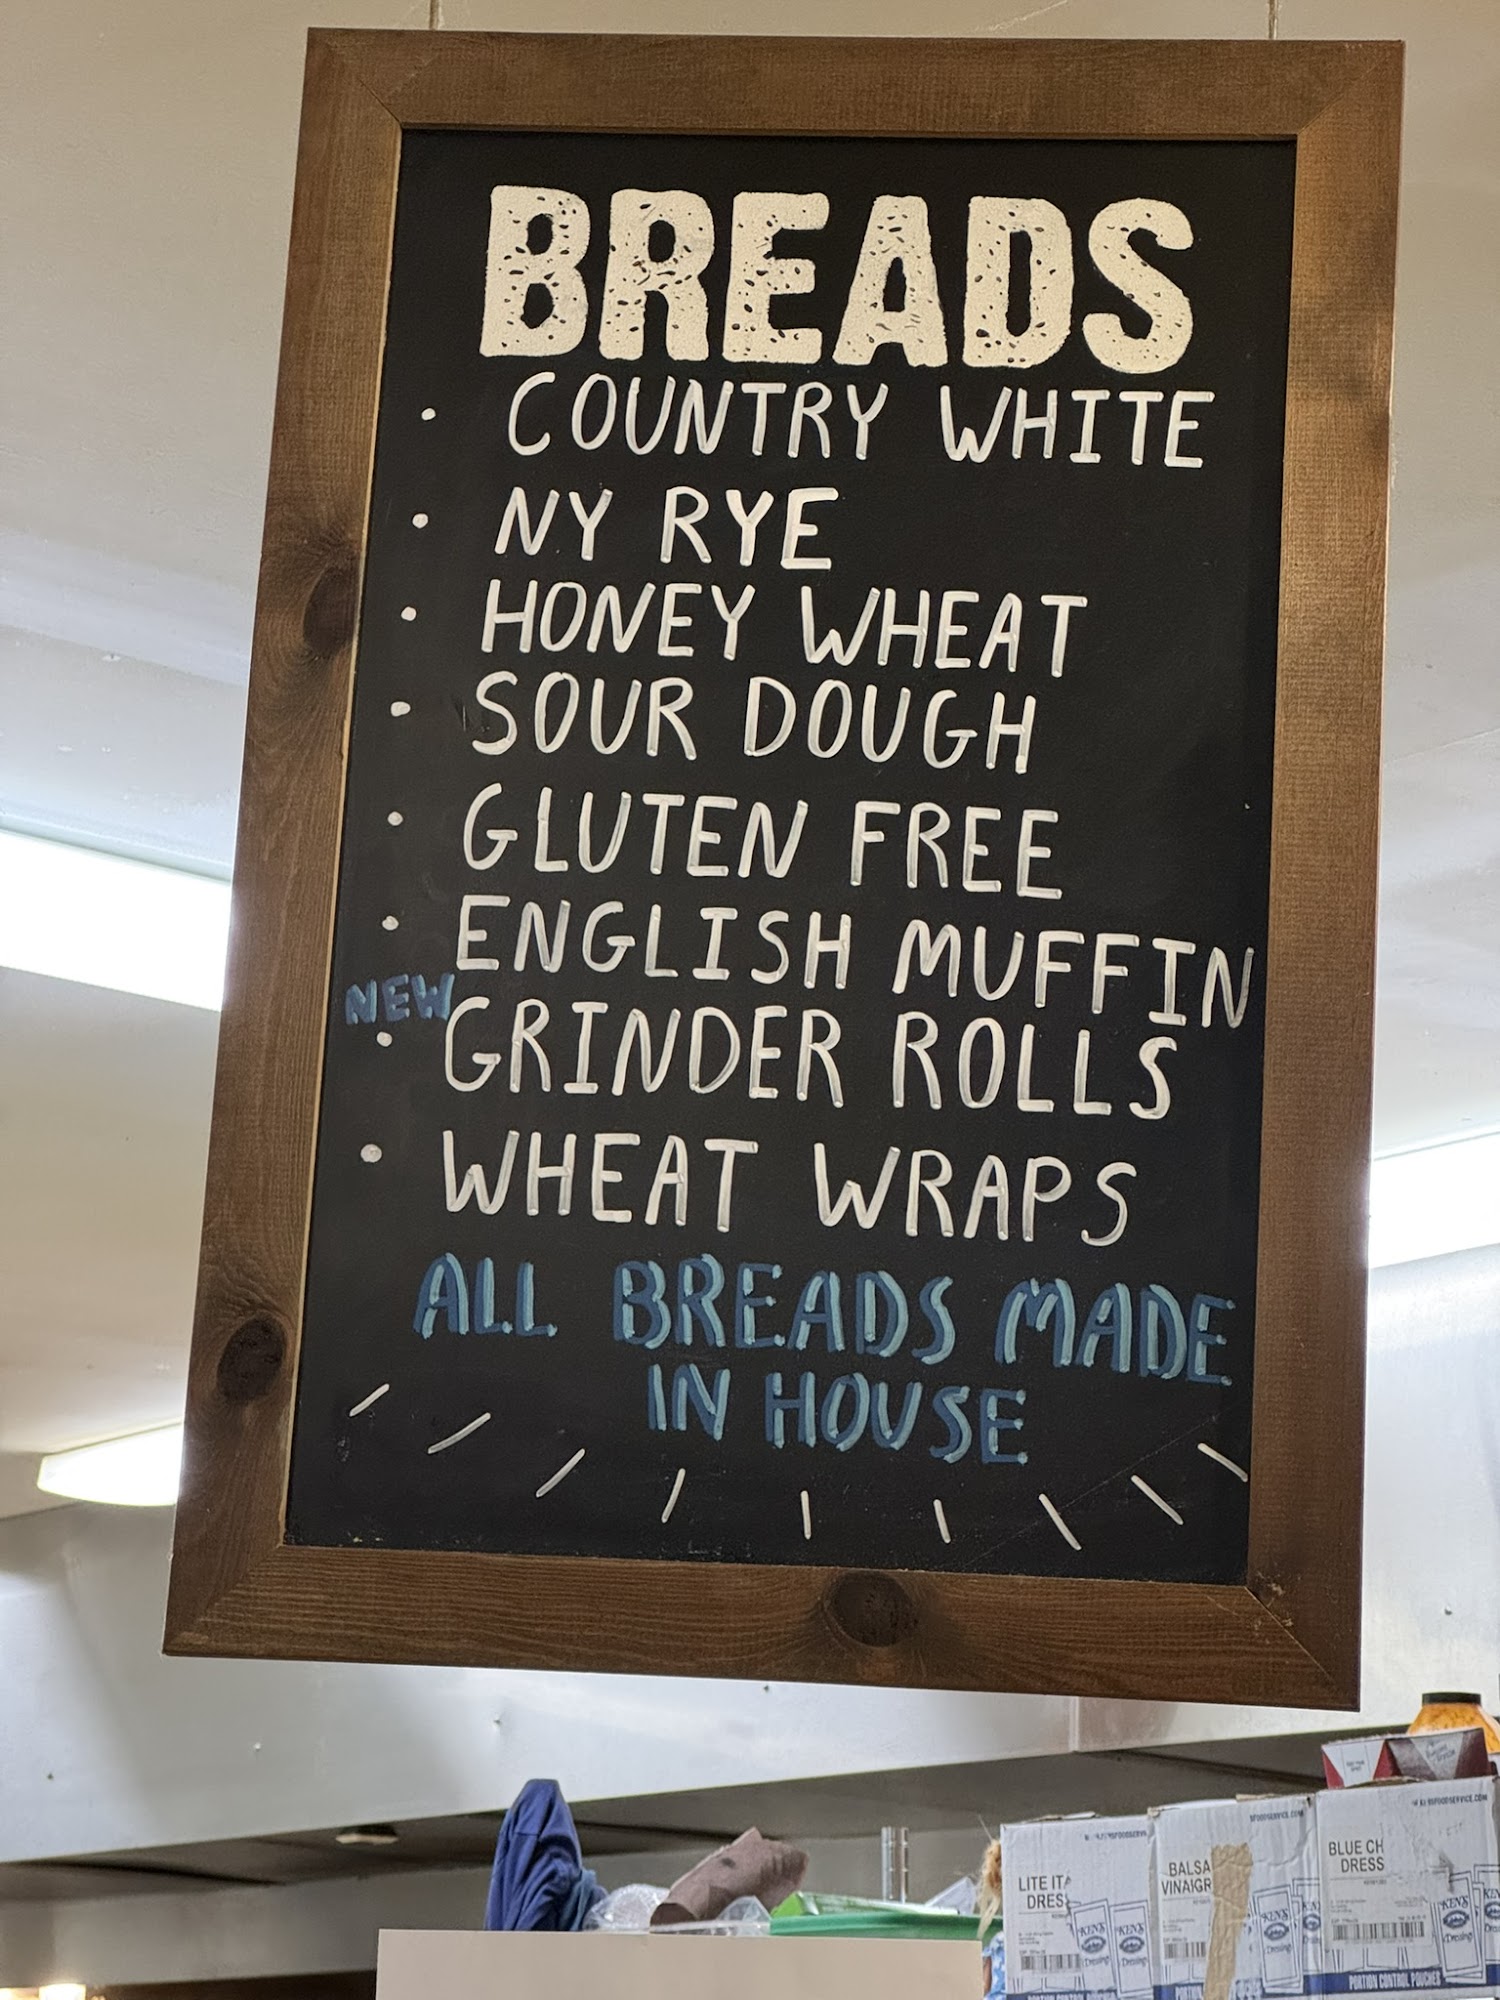 BREADS
· COUNTRY WHITE
· NY RYE
· HONEY WHEAT
· SOUR DOUGH
· GLUTEN FREE
· ENGLISH MUFFIN
NEW
· GRINDER ROLLS
· WHEAT WRAPS
ALL BREADS MADE
IN HOUSE
LITE
DRES
BALSA
VINAIGR
BLUE CH
DRESS
KEN'S
Dressing
KEN'S
Dressing
KEN'S
Dressing
KEN'S
Dressing
PORTION CONTROL POUCHES